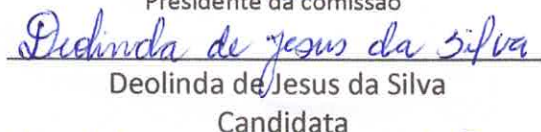 Presidente da comissão
Deolinda de Jesus da Silva
Deolinda de Jesus da Silva
Candidata